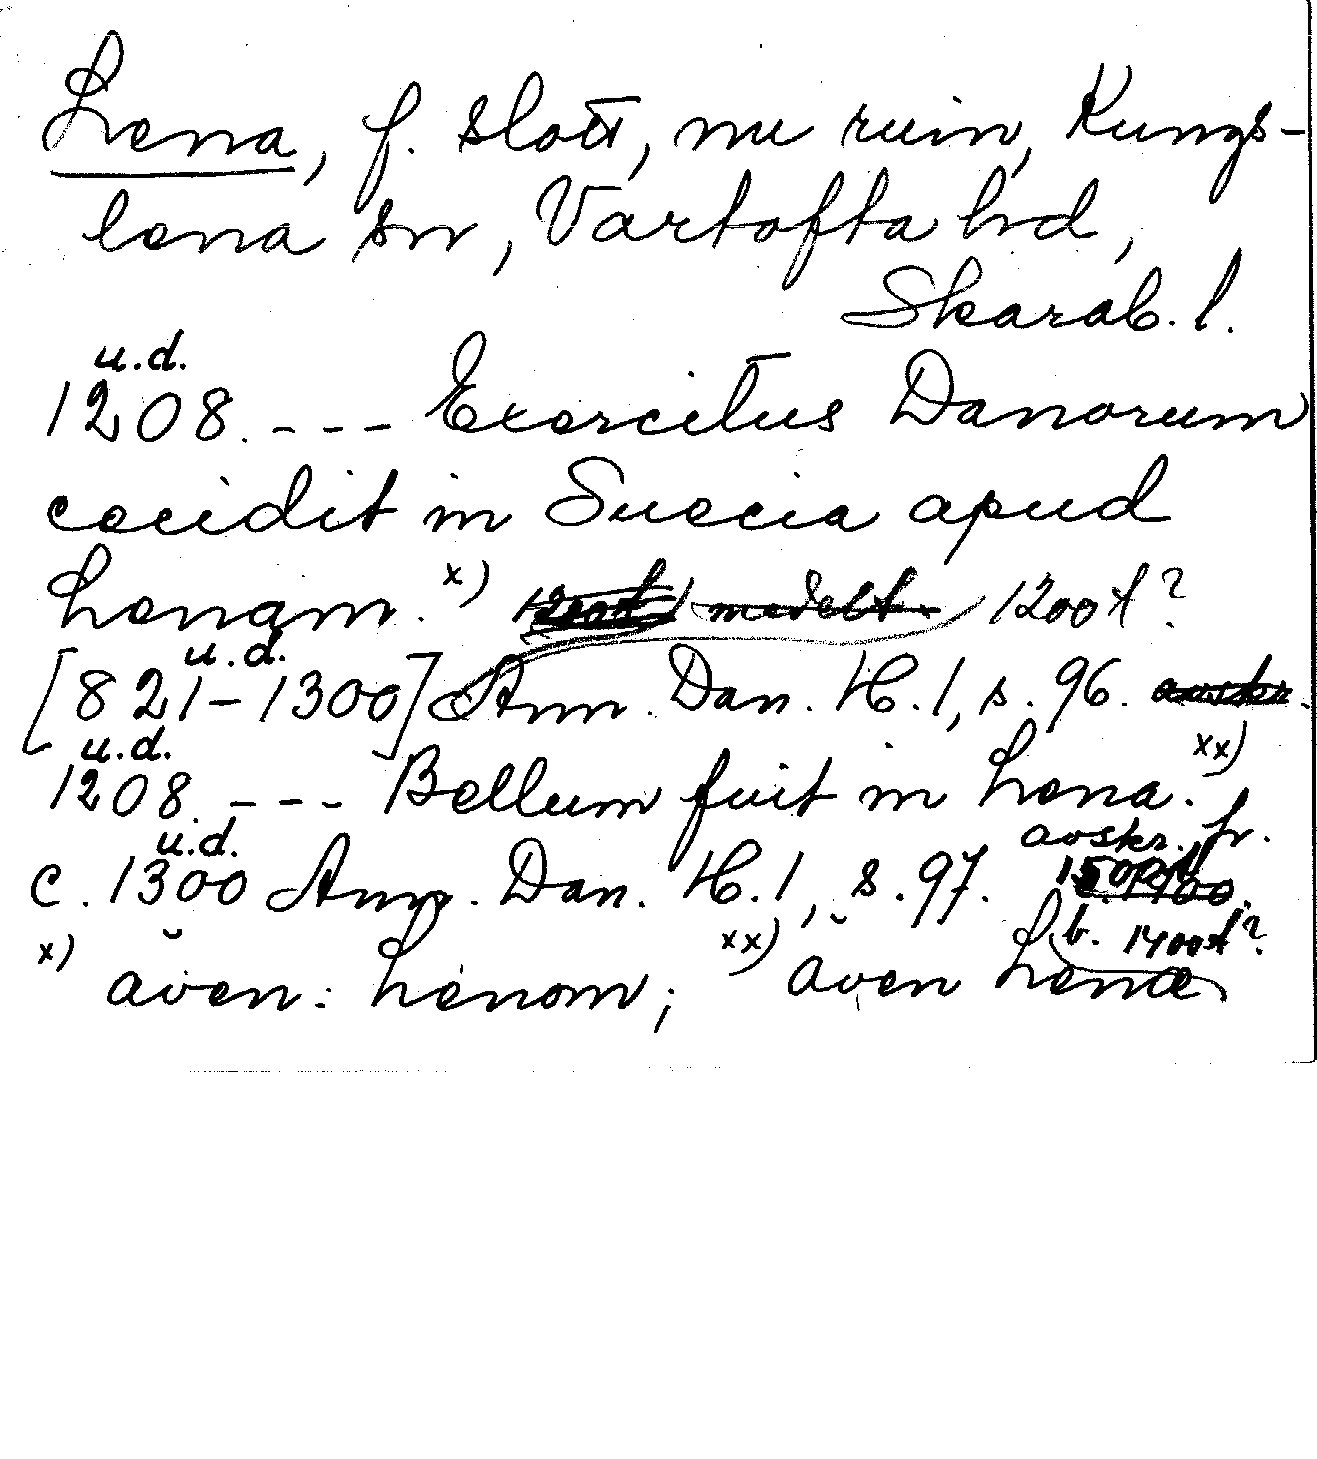 Lena, f. slott, nu ruin, Kungs-
lena sn, Vartofta hd,
Skarab. l.
u.d.
1208. --- Exercitus Danorum
cecidit in Suecia apud
Lenam. x) 1200t medelt. 1200t?
u.d.
[821-1300] Ann. Dan. H. 1, s. 96. avskr.
u.d.
1208. --- Bellum fuit in Lena. xx)
u.d. avskr. fr.
c. 1300 Ann. Dan. H. 1, s. 97.
b. 1400t?
x) även: Lenom; xx) även Lenæ